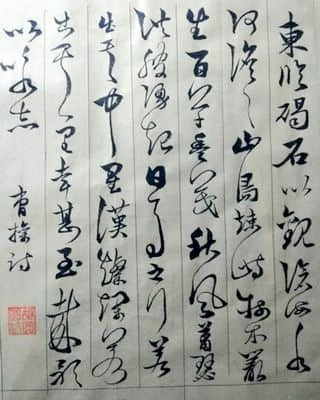 東臨碣石以觀滄海水
何澹々山島竦峙樹木叢
生百草豐茂秋風蕭瑟
洪波湧起日月之行若
出其中星漢燦爛若
出其里幸甚至哉歌
以詠志
曹操詩